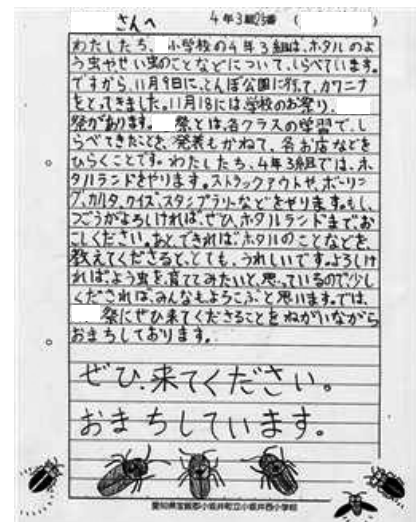 さんへ 4年3組23番 ( )
わたしたち、 小学校の4年3組は、ホタルのよ
う虫やせい虫のことなどについて、しらべています。
ですから、11月9日に、とんぼ公園に行て、カワニナ
をとってきました。11月18には学校のお祭り、
祭があります。 祭とは、各クラスの学習で、し
らべてきたことを、発表もかねて、各お店などを
ひらくことです。わたしたち、4年3組では、ホ
タルランドをやります。ストラックアウトや、ボーリン
グ、カルタ、クイズ、スタンプラリーなどをやります。もし、
つごうがよろしければ、ぜひ、ホタルランドまで、お
こしください。あと、できれば、ホタルのことなどを、
教えてくださると、とても、うれしいです。よろしけ
れば、よう虫を、育ててみたいと、思っているので、少し
くだされば、みんなもよろこぶと思います。では、
祭にぜひ来てくださることをねがいながら
おまちしております。
ぜひ、来てください。
おまちしています。
愛知県宝飯郡小坂井町立小坂井西小学校